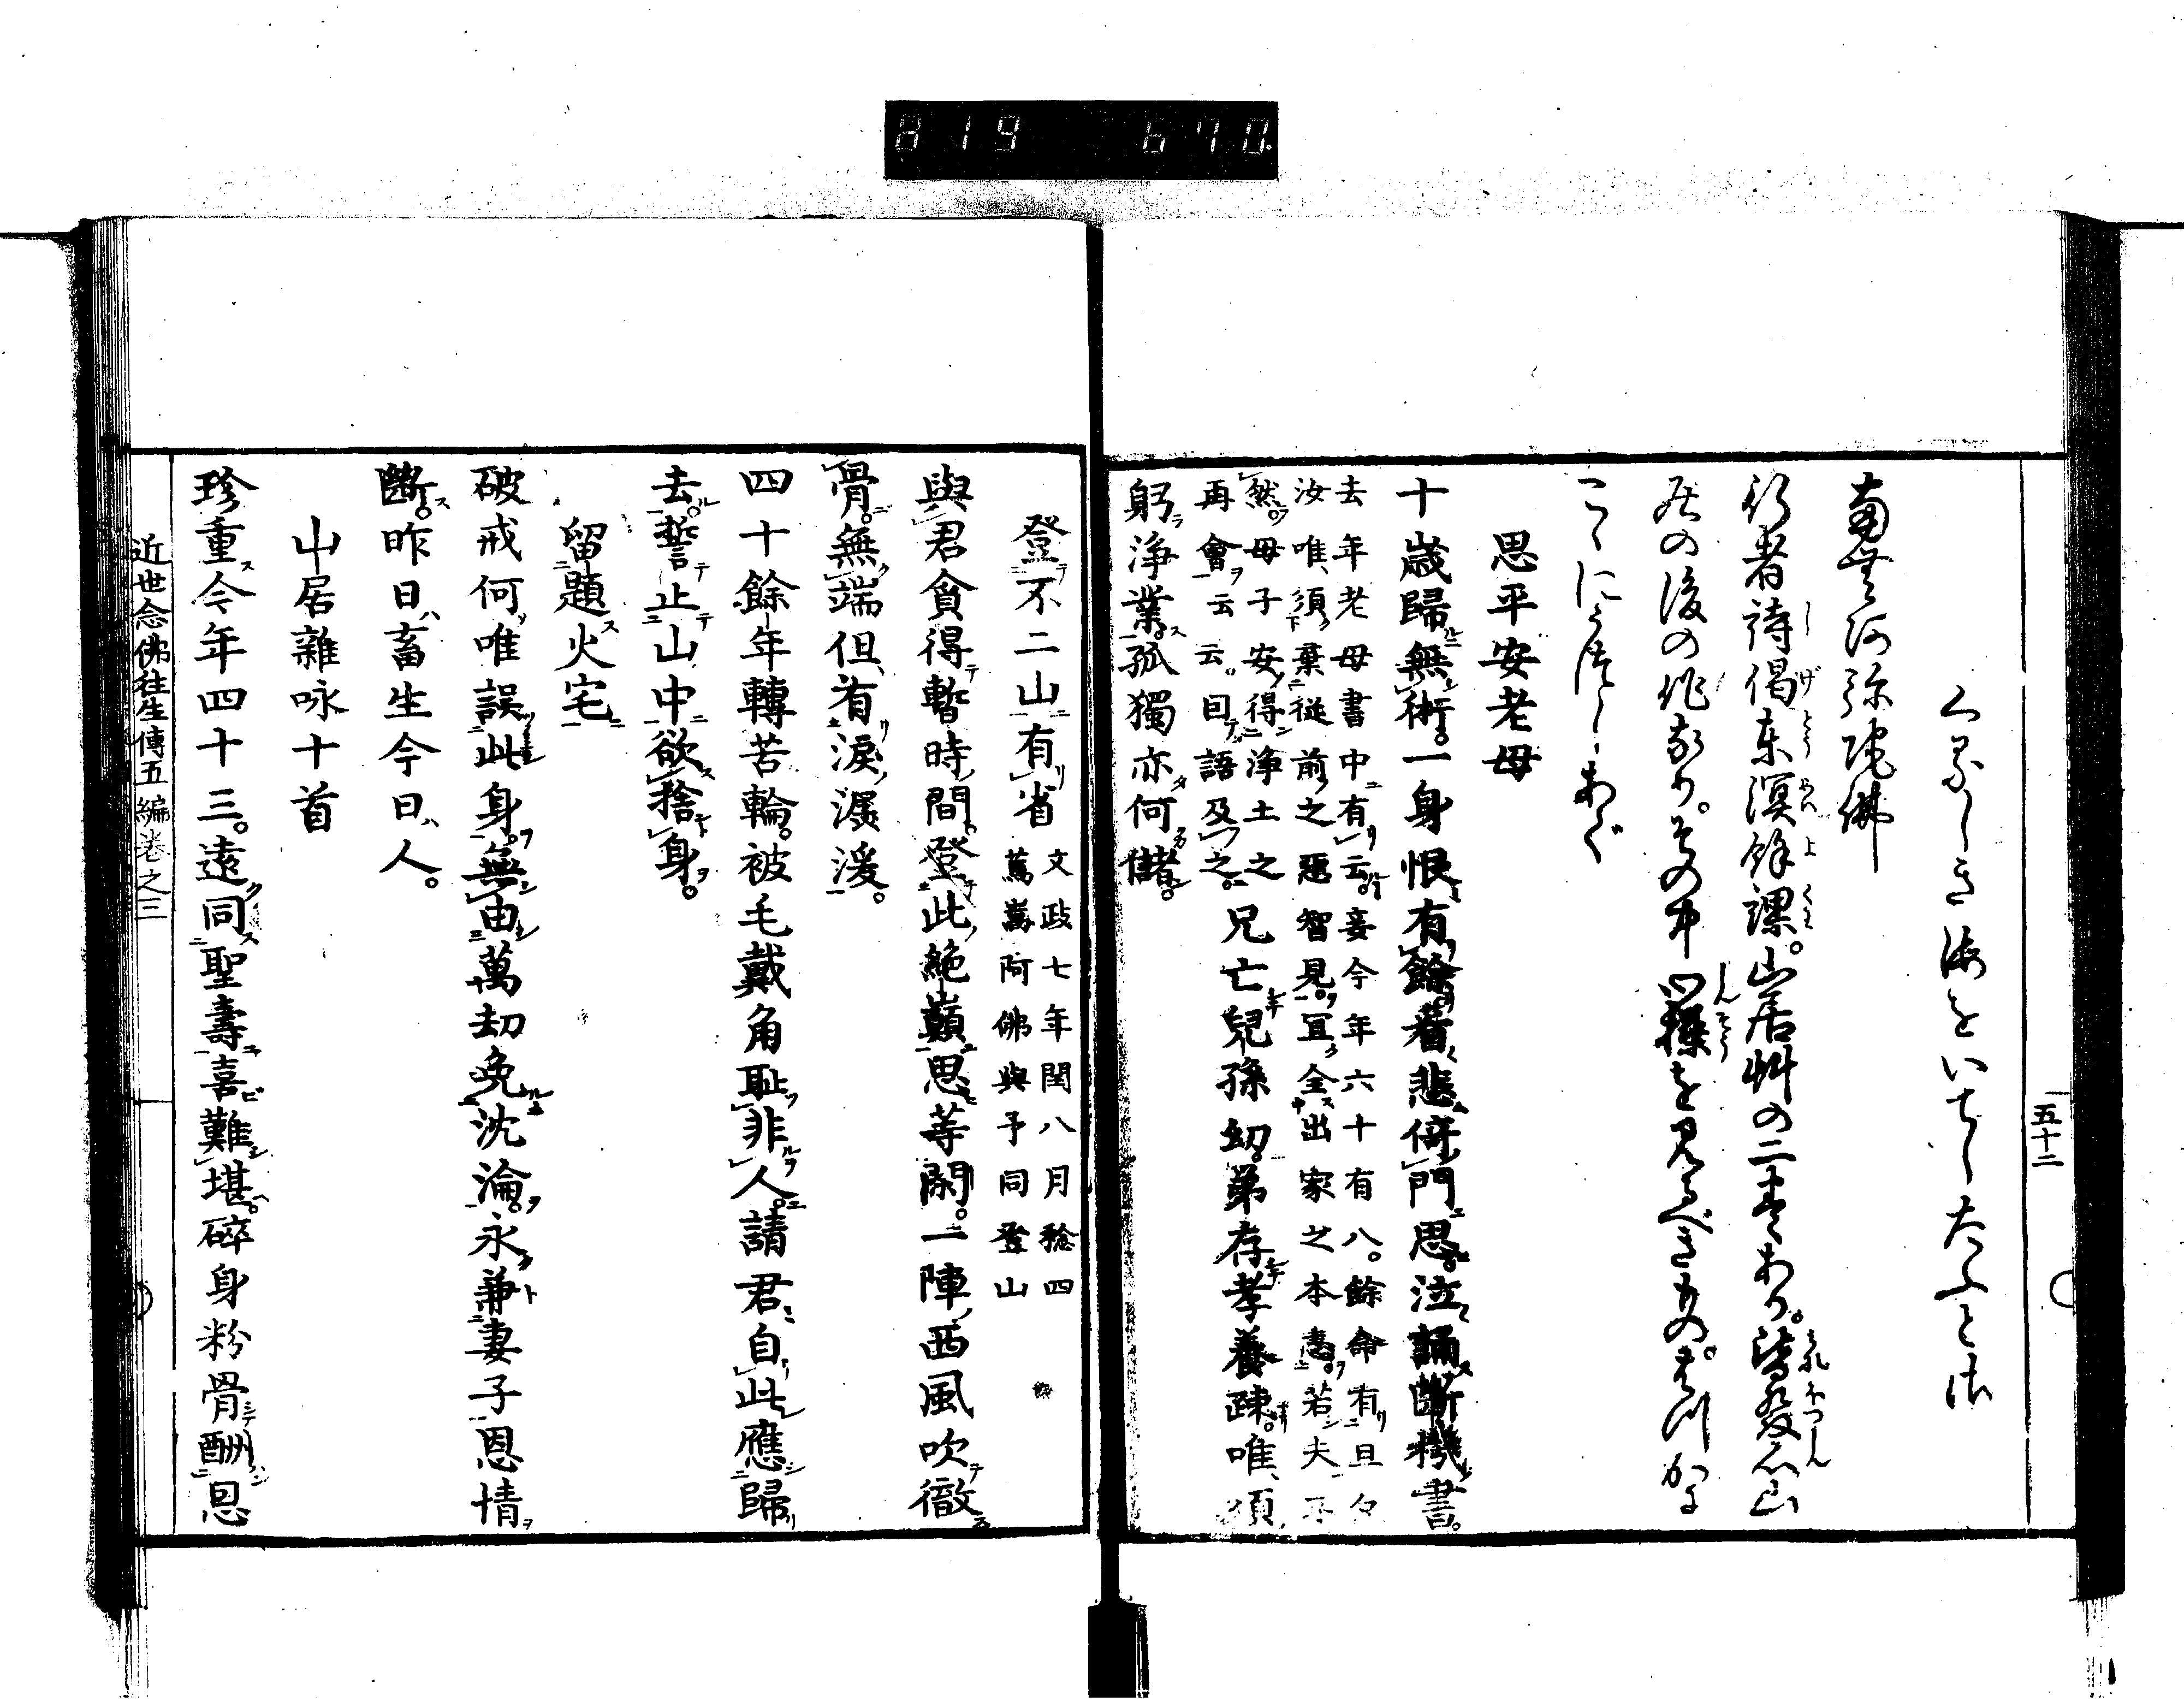 819 670
五十二
くるしき海をいでしたふとさ
南無阿弥陀佛
行者詩偈東溟餘課。山居艸の二巻あり。皆發心山
居の後の作なり。その中心操を見るべきもの。はつかに
こゝにうつしあぐ
思平安老母
十歳歸無術。一身恨有餘。看悲倚門思。泣誦斷機書。
去年老母書中有云。妾今年六十有八。餘命有旦夕
汝唯須棄從前之惡智見。冝全出家之本意。若夫不
然。母子安得淨土之
再會云云。因語及之。兄亡兒孫幼。弟存孝養疎。唯須
躬淨業。孤獨亦何儲。
登不二山有省
文政七年閏八月稔四
蔦蔦阿佛與予同登山
與君貪得暫時間。登此絶巓思等閑。一陣西風吹徹
骨。無端但有淚潺湲。
四十餘年轉苦輪。被毛戴角耻非人。請君自此應歸
去。誓止山中欲捨身。
留題火宅
破戒何唯誤此身。無由萬劫免沈淪。永兼妻子恩情
斷。昨日畜生今日人。
山居雜咏十首
珍重今年四十三。遠同聖壽喜難堪。碎身粉骨酬恩
近世念佛往生傳五編卷之三